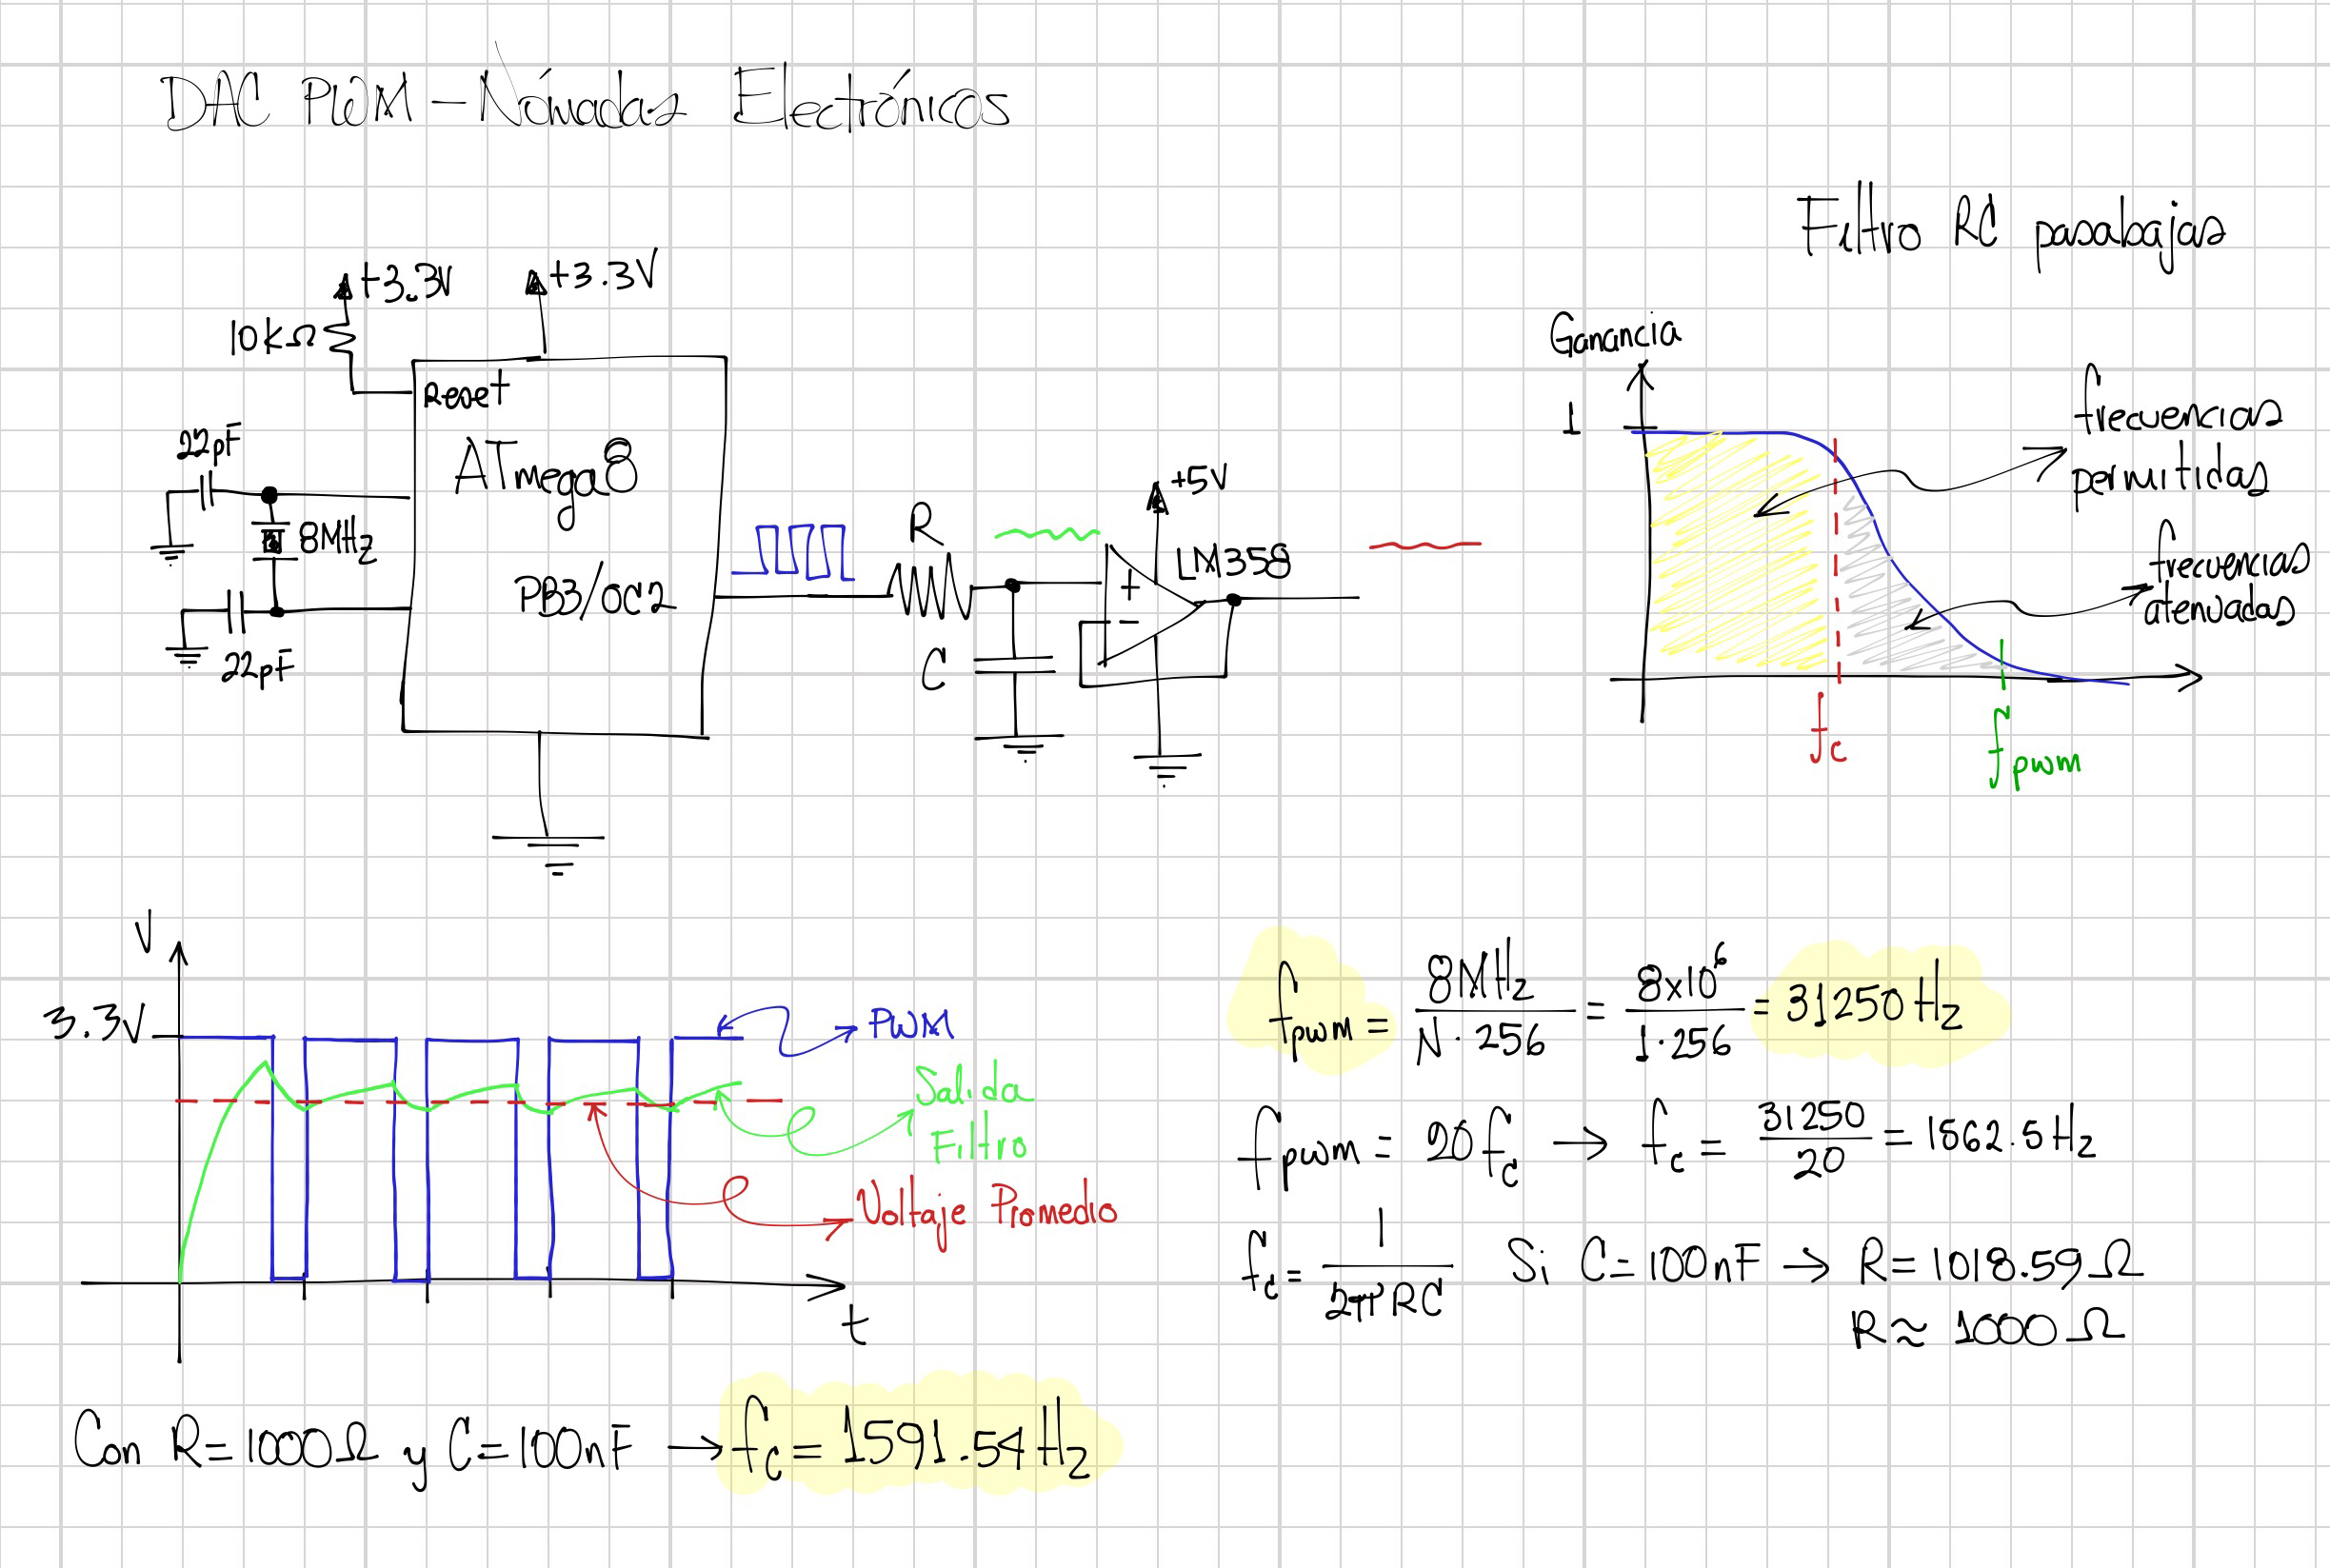 DAC PWM - Nómadas Electrónicos
Filtro RC pasabajas
+3.3V
+3.3V
10kΩ
Reset
22pF
ATmega8
8MHz
PB3/OC2
22pF
R
C
+5V
LM358
+
-
Ganancia
1
frecuencias
permitidas
frecuencias
atenuadas
fc
fpwm
V
3.3V
PWM
Salida
Filtro
Voltaje Promedio
t
fpwm = 8MHz / N·256 = 8x10⁶ / 1·256 = 31250 Hz
fpwm = 20fc → fc = 31250 / 20 = 1562.5Hz
fc = 1 / 2πRC Si C=100nF → R=1018.59Ω
R≈1000Ω
Con R=1000Ω y C=100nF → fc = 1591.54Hz